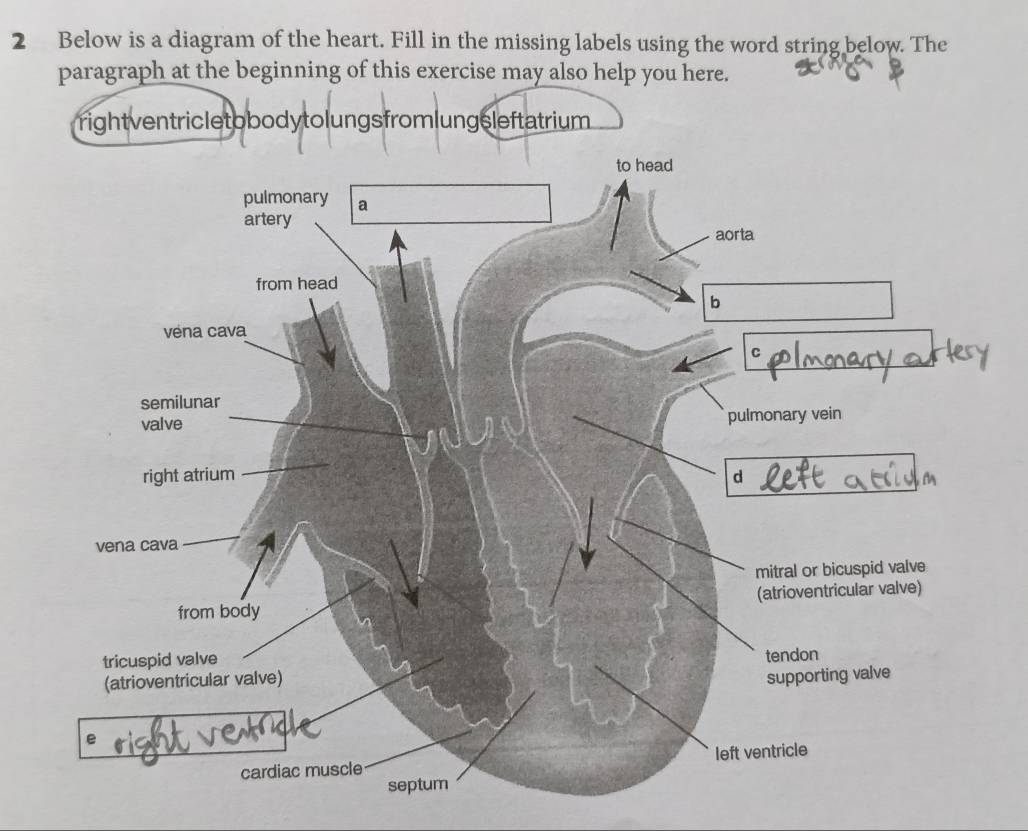 2 Below is a diagram of the heart. Fill in the missing labels using the word string below. The
paragraph at the beginning of this exercise may also help you here.
rightventricletobodytolungsfromlungsleftatrium
to head
pulmonary
artery
a
aorta
from head
b
vena cava
c polmonary artery
semilunar
valve
pulmonary vein
right atrium
d left atrium
vena cava
mitral or bicuspid valve
(atrioventricular valve)
from body
tricuspid valve
(atrioventricular valve)
tendon
supporting valve
e right ventricle
left ventricle
cardiac muscle
septum